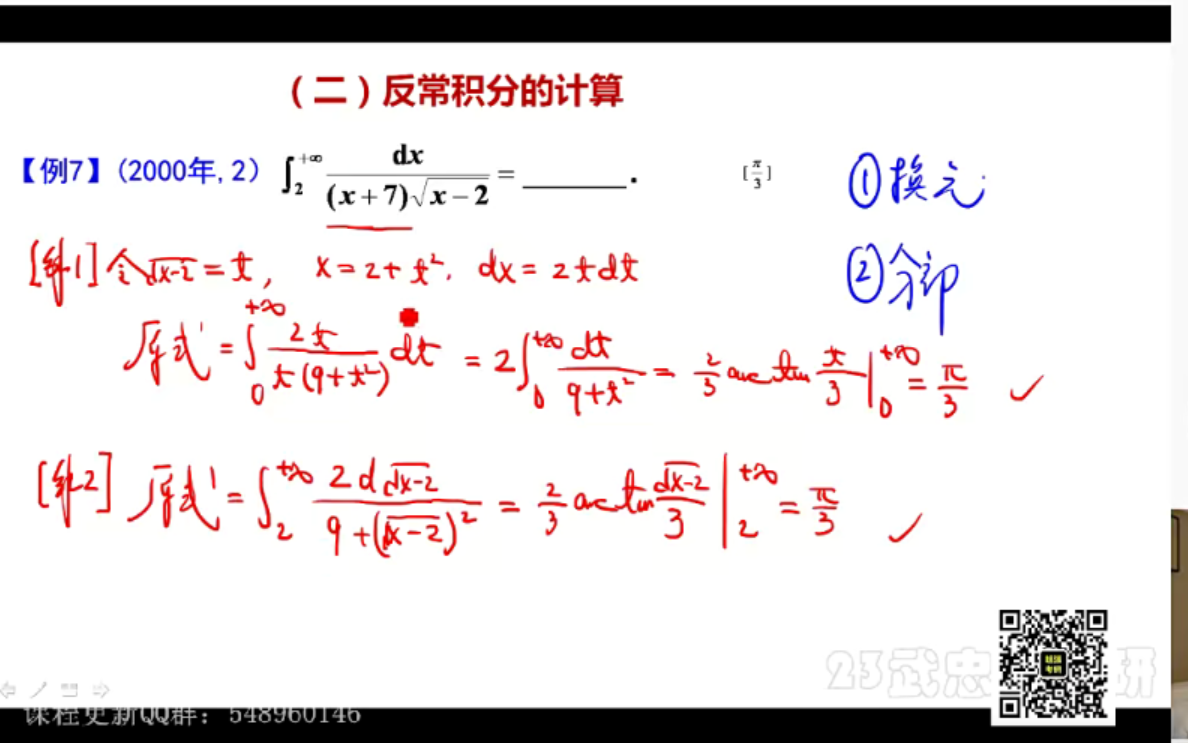 （二）反常积分的计算
【例7】(2000年, 2) ∫₂^{+∞} dx / ((x+7)√(x−2)) = ______. [π/3]
①换元
②分部
[解1] 令√(x-2) = t, x = 2 + t². dx = 2tdt
原式 = ∫₀^{+∞} 2t / (t(9+t²)) dt = 2∫₀^{+∞} dt / (9+t²) = 2/3 arctan t/3 |₀^{+∞} = π/3 ✓
[解2] 原式 = ∫₂^{+∞} 2d√(x-2) / (9+(√(x-2))²) = 2/3 arctan √(x-2)/3 |₂^{+∞} = π/3 ✓
23武忠 研
课程更新QQ群：548960146